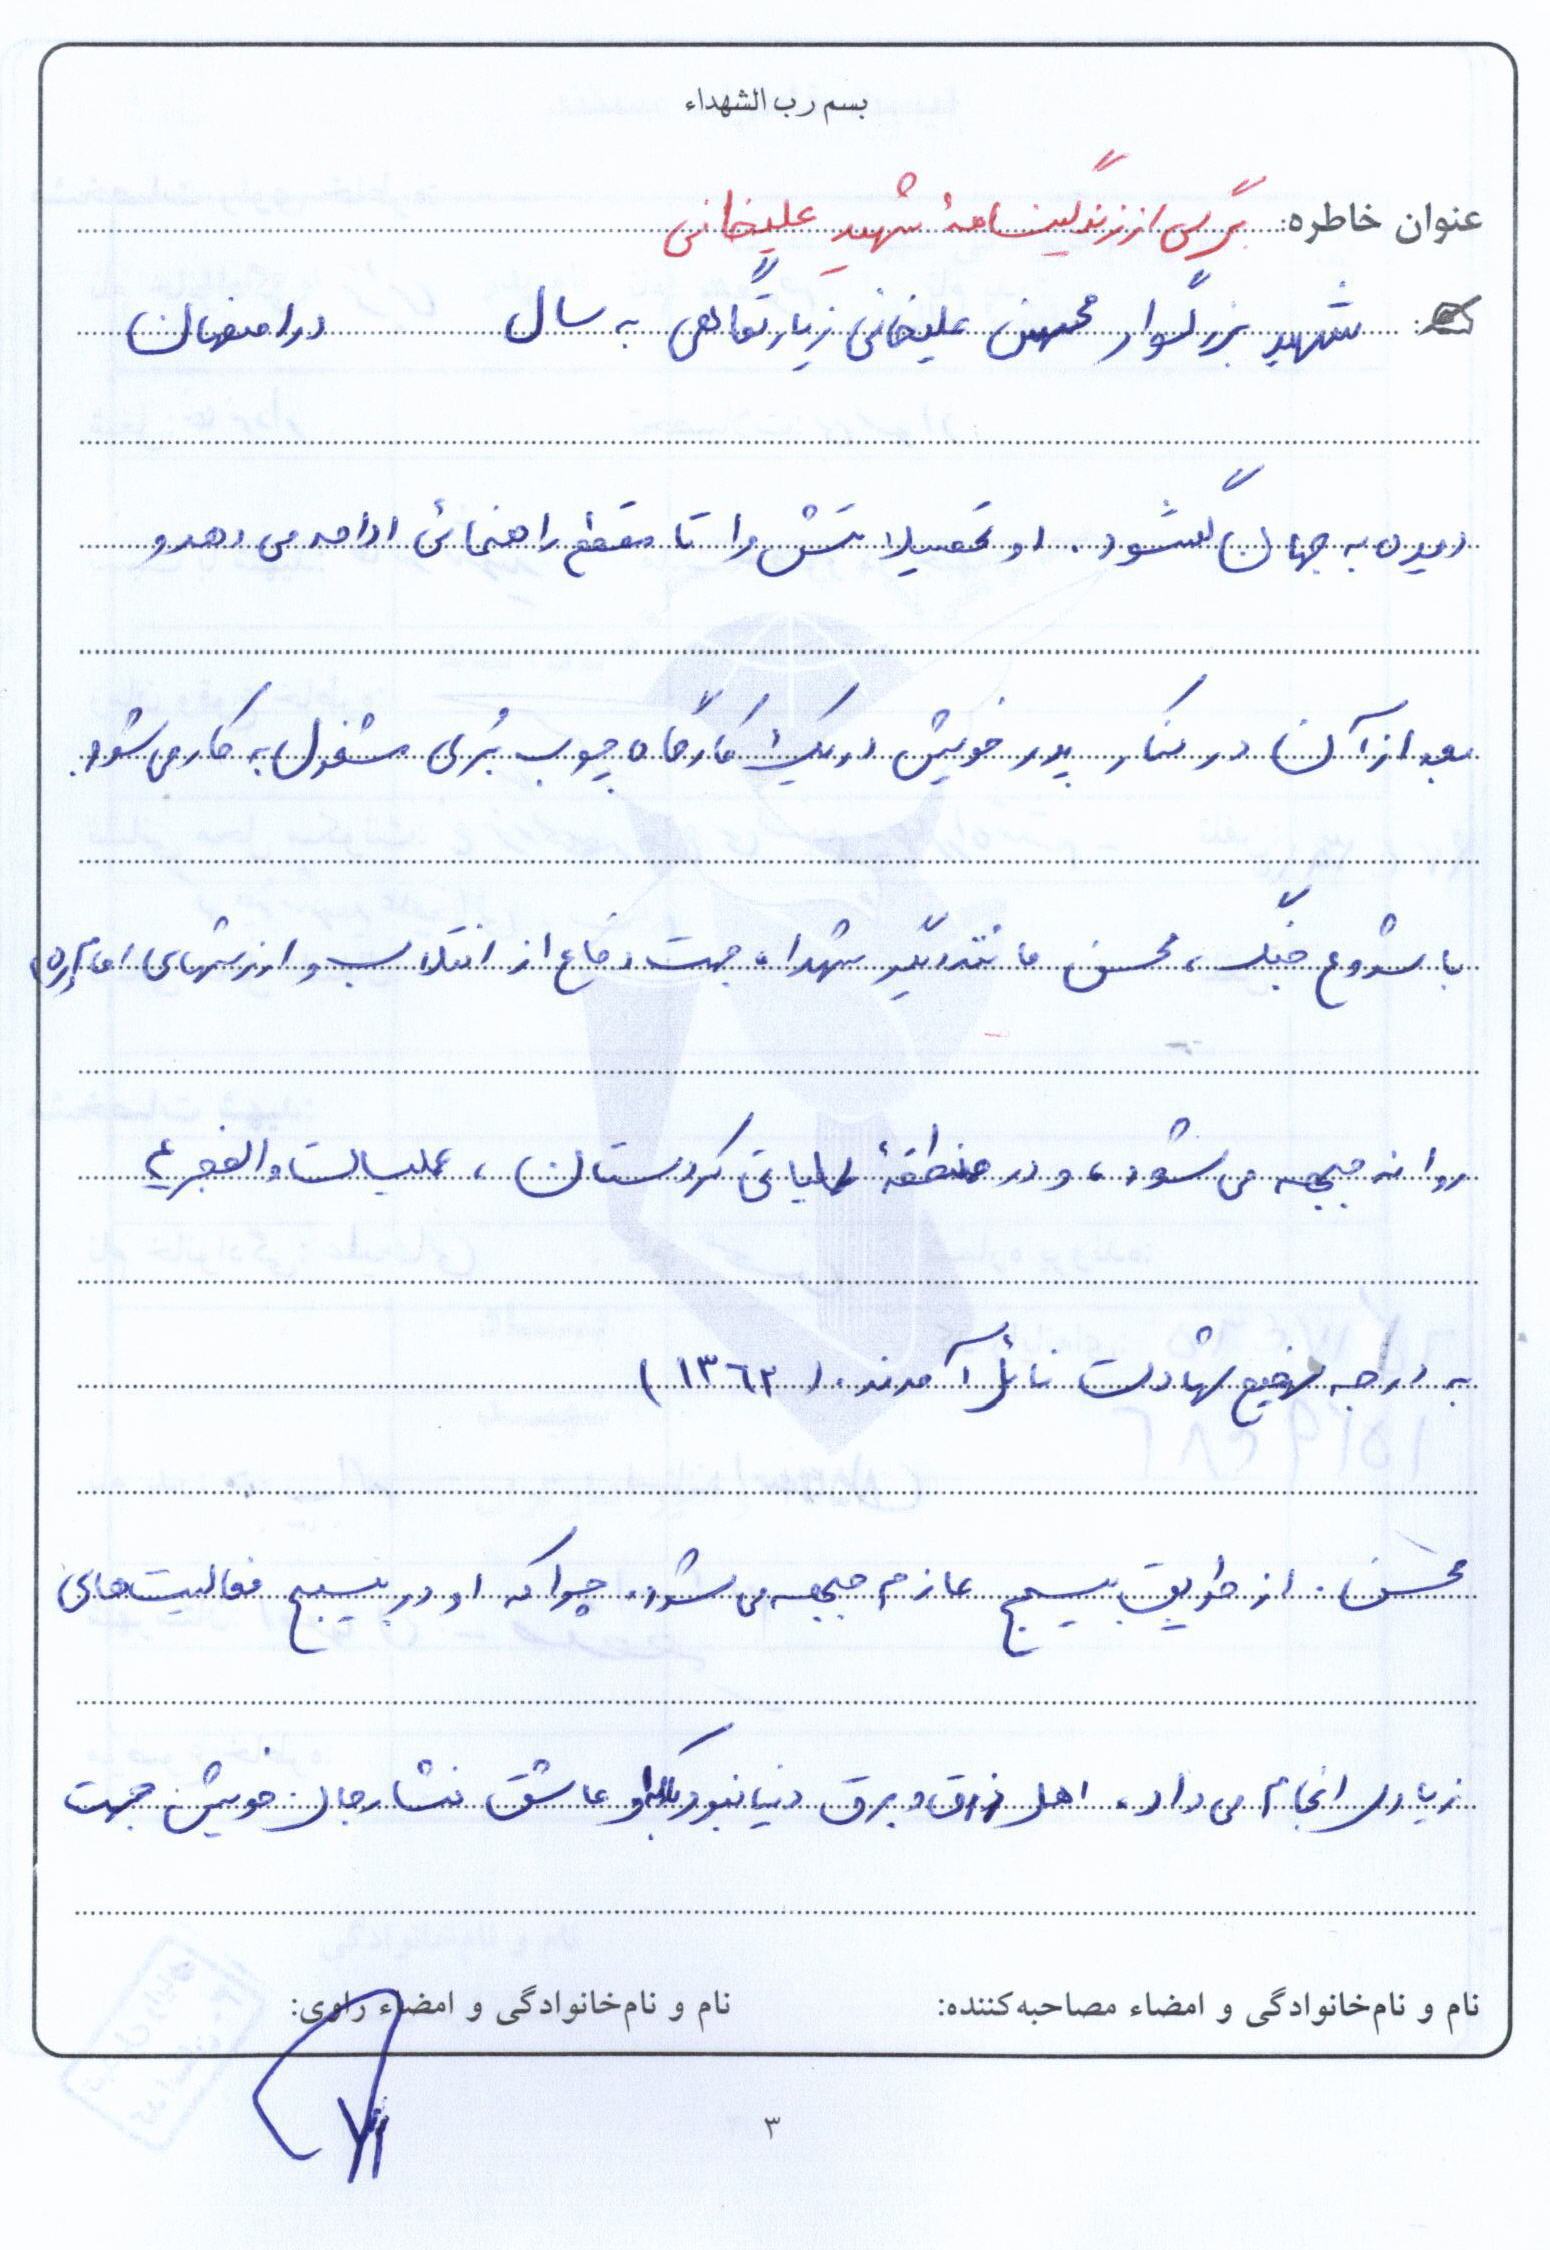 بسم رب الشهداء
عنوان خاطره: برگی از زندگینامهٔ شهید علیخانی
شهید بزرگوار محسن علیخانی زیارتگاهی به سال در اصفهان
دیده به جهان گشود. او تحصیلاتش را تا مقطع راهنمائی ادامه می دهد و
بعد از آن در کنار پدر خویش در یک کارگاه چوب بُری مشغول به کار می شود.
با شروع جنگ، محسن مانند دیگر شهداء جهت دفاع از انقلاب و ارزشهای امام (ره)
روانه جبهه می شود، و در منطقهٔ عملیاتی کردستان، عملیات والفجر ۴
به درجه رفیع شهادت نائل آمدند. (۱۳۶۲)
محسن از طریق بسیج عازم جبهه می شود. چرا که او در بسیج فعالیت های
زیادی انجام می داد. اهل زرق و برق دنیا نبود بلکه او عاشق نثار جان خویش جهت
نام و نام خانوادگی و امضاء مصاحبه کننده: نام و نام خانوادگی و امضاء راوی:
۳